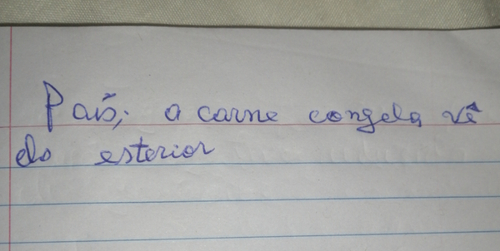 País; a carne congela vê
do esterior